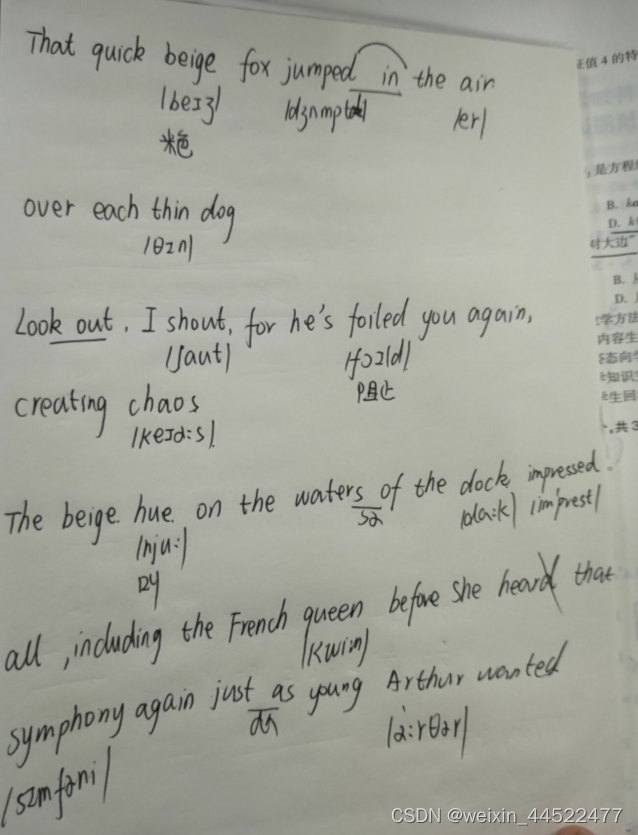 That quick beige fox jumped in the air
/beɪʒ/ /er/
米色
over each thin dog
/θɪn/
Look out, I shout, for he's foiled you again,
/ʃaut/ /fɔɪld/
阻止
creating chaos
/keɪɑ:s/
The beige hue on the waters of the dock impressed
/dɑ:k/ /im'prest/
all, including the French queen before she heard that
/kwin/
symphony again just as young Arthur wanted
/ɑ:rθər/
/sɪmfəni/
征值4的特
是方程
B.
D.
对大边"
B.
D.
学方法
内容生
态向
知识
生回
共3
CSDN @weixin_44522477